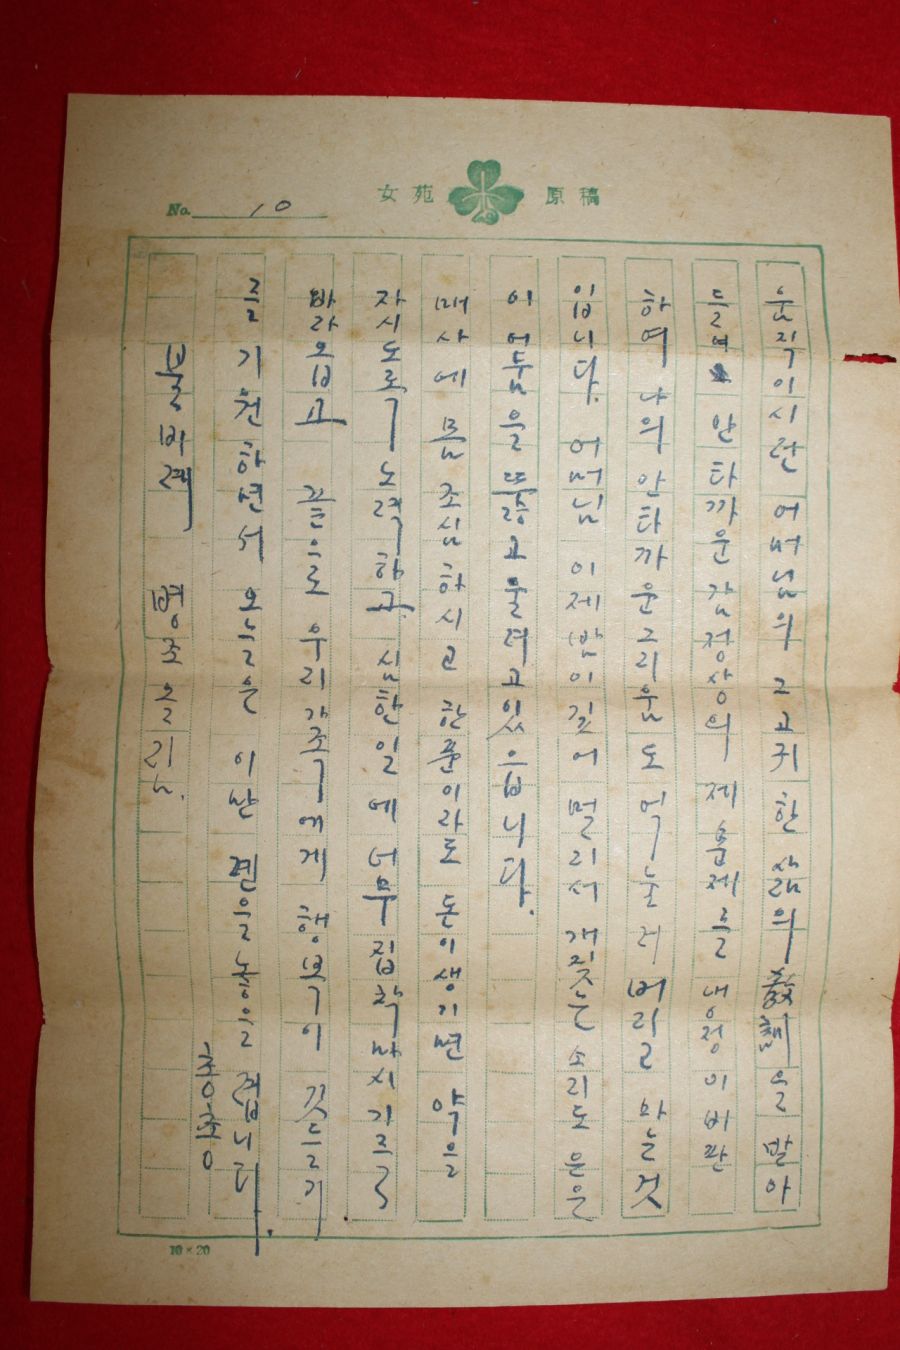 女苑 原稿
No. 10
움직이시란 어머님의 그 고귀한 삶의 을 받아
들여 안타까운 감정상의 제 문제를 냉정이 비판
하여 나의 안타까운 그리움도 억눌러 버리고 마는 것
입니다. 어머님 이제 밤이 깊어 멀리서 개짖는 소리도 은은
이 어둠을 뚫고 울려고 있읍니다.
매사에 몸조심 하시고 한푼이라도 돈이 생기면 약을
자시도록 노력하고. 심한 일에 너무 집착 마시기를
바라옵고 끝으로 우리 가족에게 행복이 깃들기
를 기원하면서 오늘은 이만 펜을 놓을 렵니다.
총총
불비례 병조 올리님.
10×20